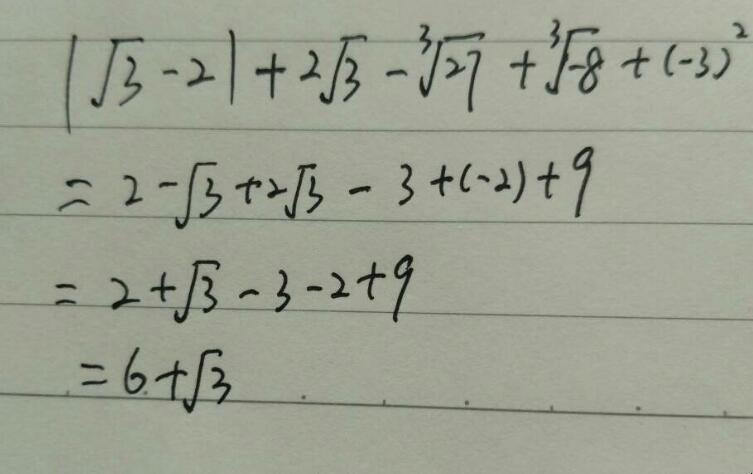 |√3 - 2| + 2√3 - ³√27 + ³√-8 + (-3)²
= 2 - √3 + 2√3 - 3 + (-2) + 9
= 2 + √3 - 3 - 2 + 9
= 6 + √3